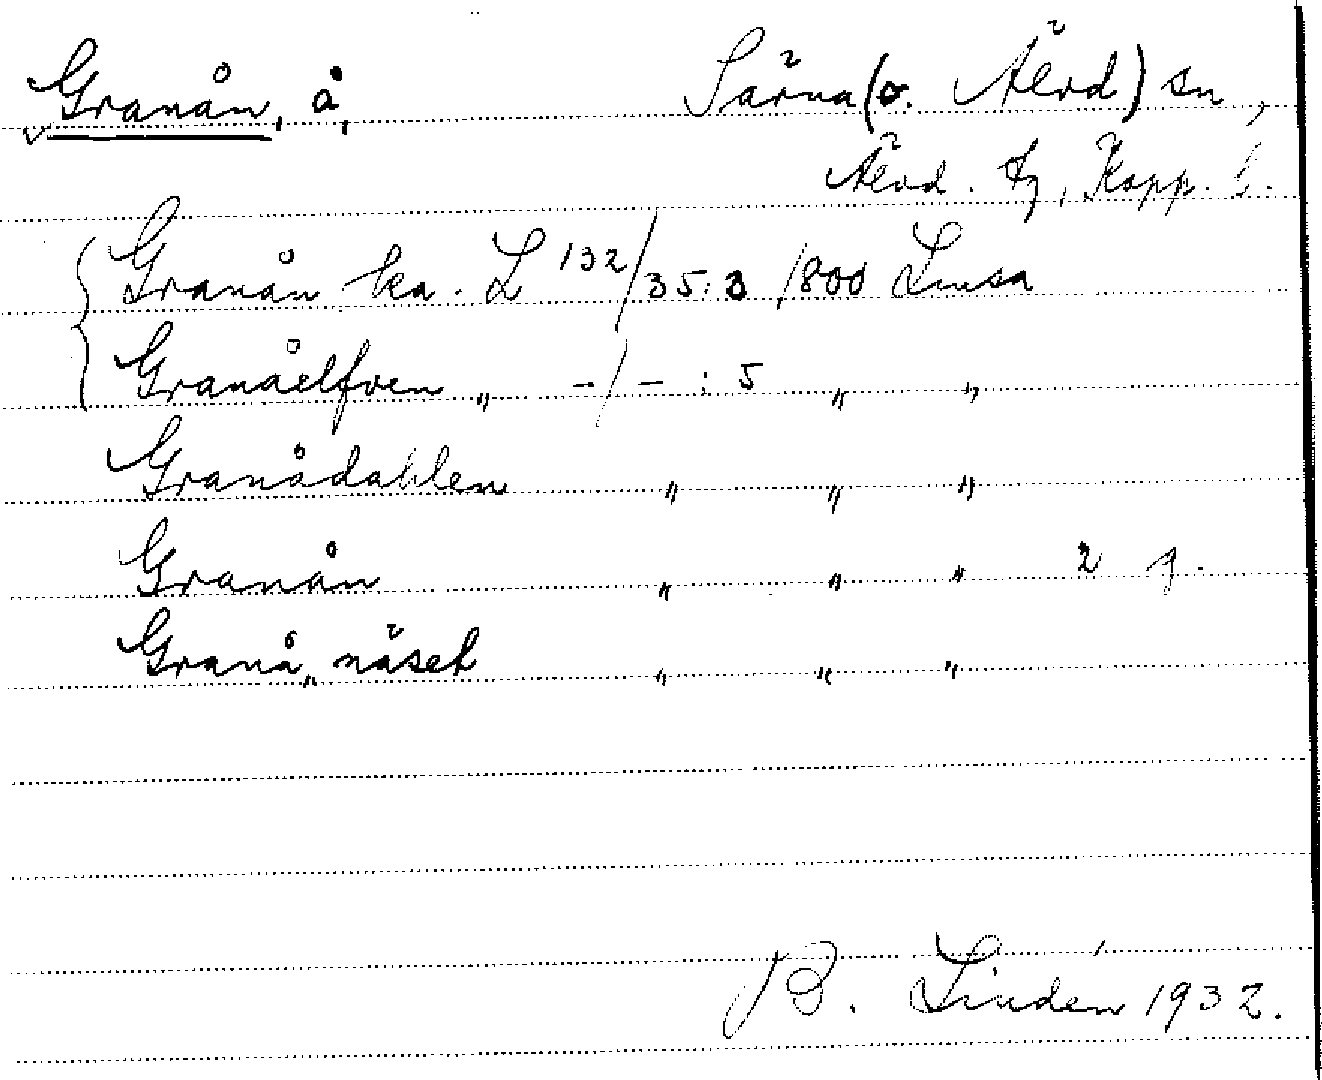 Granån, å, Särna (o. Älvd) sn,
Älvd. tg, Kopp. l.
Granån ka. L 132/35:3 1800 Linsa
Granåelfven „ -/- : 5 „ „
Granådahlen „ „ „
Granån „ „ „ 2 g.
Granå„näset „ „ „
B. Lindén 1932.